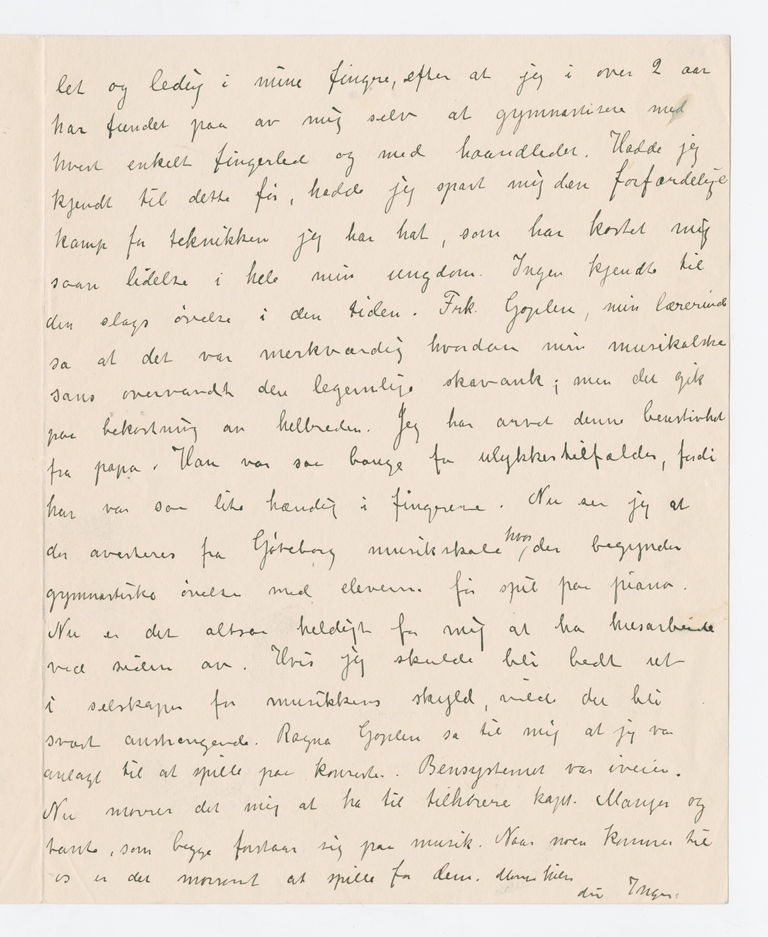 let og ledig i mine fingre, efter at jeg i over 2 aar
har fundet paa av mig selv at gymnastisere med
hvert enkelt fingerled og med haandledet. Hadde jeg
kjendt til dette før, hadde jeg spart mig den forfærdelige
kamp for teknikken jeg har hat, som har kostet mig
saan lidelse i hele min ungdom. Ingen kjendte til
den slags øvelse i den tiden. Frk. Goplen, min lærerinde
sa at det var merkværdig hvordan min musikalske
sans overvandt den legemlige skavank; men det gik
paa bekostning av helbreden. Jeg har arvet denne benstivhet
fra papa. Han var saa bange for ulykkestilfælder, fordi
han var saa lite hændig i fingrene. Nu ser jeg at
der averteres fra Gøteborg musikskole hvor der begynder
gymnastiske øvelse med eleverne før spil paa piano.
Nu er det altsaa heldigt for mig at ha husarbeide
ved siden av. Hvis jeg skulde bli bedt ut
i selskaper for musikkens skyld, vilde det bli
svært anstrengende. Ragna Goplen sa til mig at jeg var
anlagt til at spille paa konserter. Bensystemet var iveien.
Nu morrer det mig at ha til tilhørere kapt. Manges og
tante, som begge forstaar sig paa musik. Naar noen kommer til
os er det morsomt at spille for dem. hilsen
din Inga.